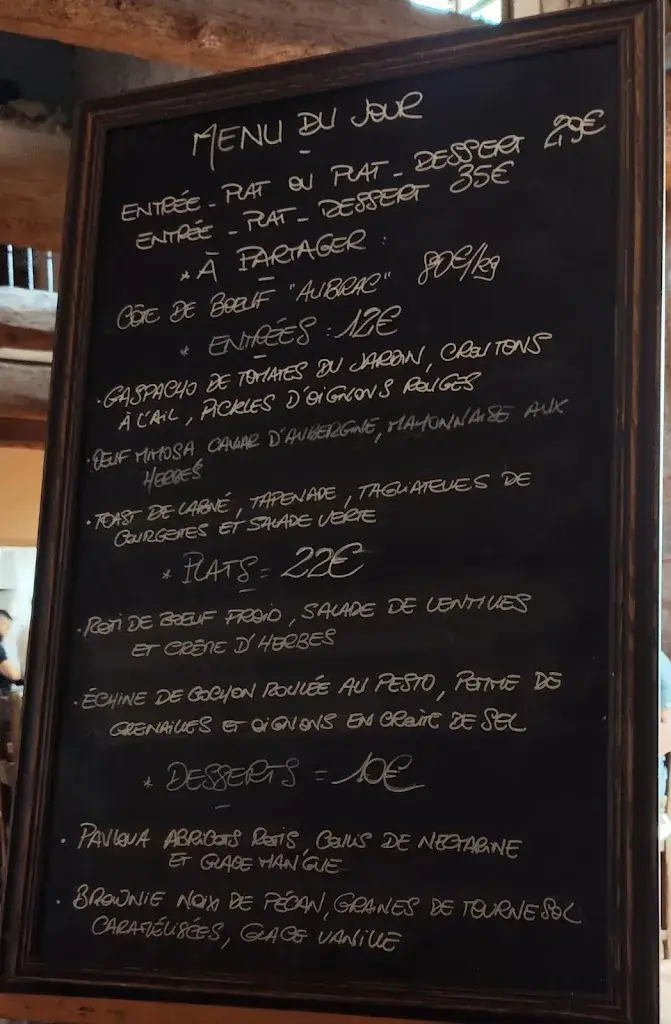 MENU DU JOUR
ENTRÉE - PLAT OU PLAT - DESSERT 29€
ENTRÉE - PLAT - DESSERT 35€
* À PARTAGER :
CÔTE DE BOEUF "AUBRAC" 80€/kg
* ENTRÉES : 12€
• GASPACHO DE TOMATES DU JARDIN, CROUTONS
À L'AIL, PICKLES D'OIGNONS ROUGES
• OEUF MIMOSA, CAVIAR D'AUBERGINE, MAYONNAISE AUX
HERBES
• TOAST DE LABNÉ, TAPENADE, TAGLIATELLES DE
COURGETTES ET SALADE VERTE
* PLATS = 22€
• ROTI DE BOEUF FROID, SALADE DE LENTILLES
ET CRÈME D'HERBES
• ÉCHINE DE COCHON ROULÉE AU PESTO, POMME DE
GRENAILLES ET OIGNONS EN CROÛTE DE SEL
* DESSERTS = 10€
• PAVLOVA ABRICOTS ROTIS, COULIS DE NECTARINE
ET GLACE MANGUE
• BROWNIE NOIX DE PÉCAN, GRAINES DE TOURNESOL
CARAMÉLISÉES, GLACE VANILLE